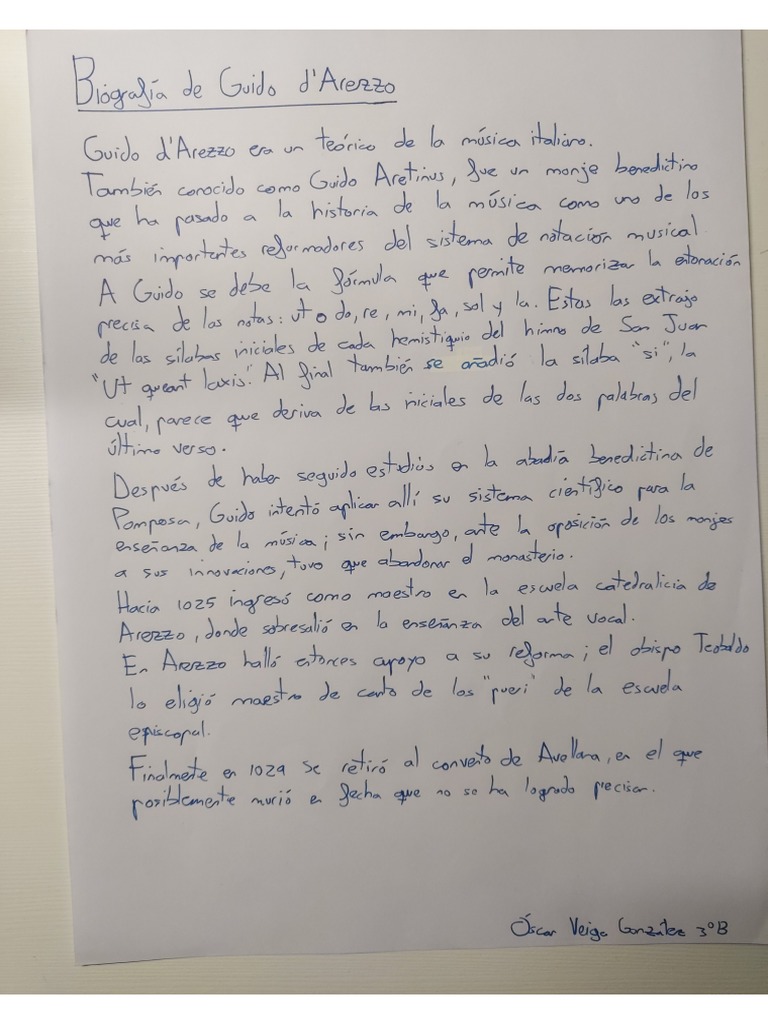 Biografía de Guido d'Arezzo
Guido d'Arezzo era un teórico de la música italiano.
También conocido como Guido Aretinus, fue un monje benedictino
que ha pasado a la historia de la música como uno de los
más importantes reformadores del sistema de notación musical
A Guido se debe la fórmula que permite memorizar la entonación
precisa de las notas: ut o do, re, mi, fa, sol y la. Estas las extrajo
de las sílabas iniciales de cada hemistiquio del himno de San Juan
"Ut queant laxis." Al final también se añadió la sílaba "si", la
cual, parece que deriva de las iniciales de las dos palabras del
último verso.
Después de haber seguido estudios en la abadía benedictina de
Pomposa, Guido intentó aplicar allí su sistema científico para la
enseñanza de la música; sin embargo, ante la oposición de los monjes
a sus innovaciones, tuvo que abandonar el monasterio.
Hacia 1025 ingresó como maestro en la escuela catedralicia de
Arezzo, donde sobresalió en la enseñanza del arte vocal.
En Arezzo halló entonces apoyo a su reforma; el obispo Teobaldo
lo eligió maestro de canto de los "pueri" de la escuela
episcopal.
Finalmente en 1029 se retiró al convento de Avellana, en el que
posiblemente murió en fecha que no se ha logrado precisar.
Óscar Veiga González 3ºB